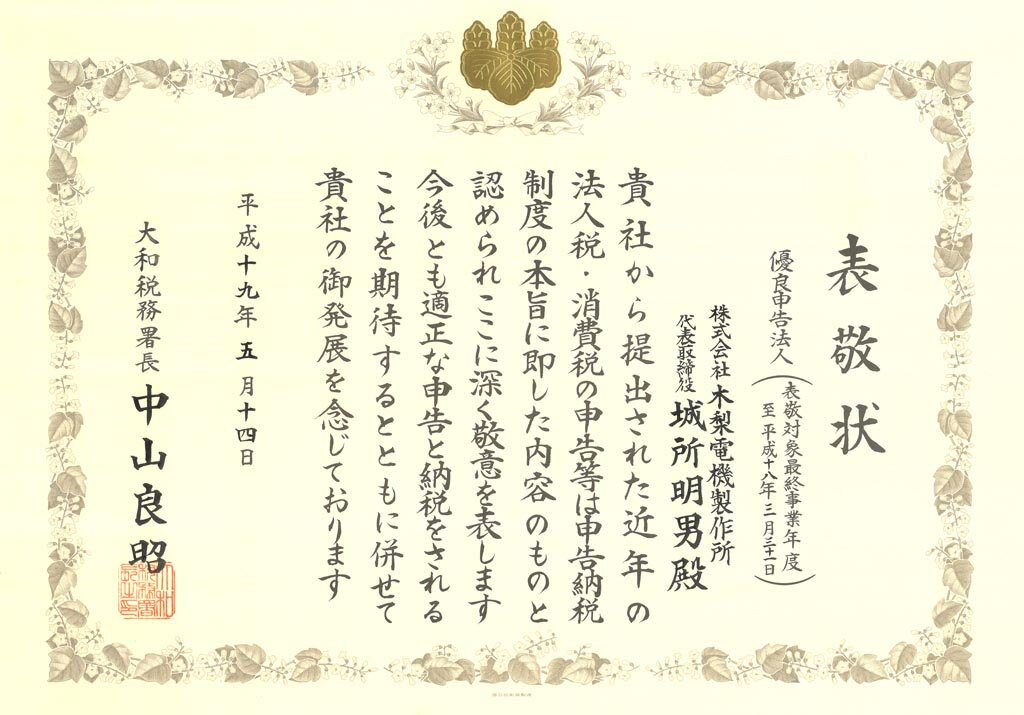 表敬状
優良申告法人
(表敬対象最終事業年度
至平成十八年三月三十一日)
株式会社木梨電機製作所
代表取締役 城所明男殿
貴社から提出された近年の
法人税・消費税の申告等は申告納税
制度の本旨に即した内容のものと
認められここに深く敬意を表します
今後とも適正な申告と納税をされる
ことを期待するとともに併せて
貴社の御発展を念じております
平成十九年五月十四日
大和税務署長 中山良昭